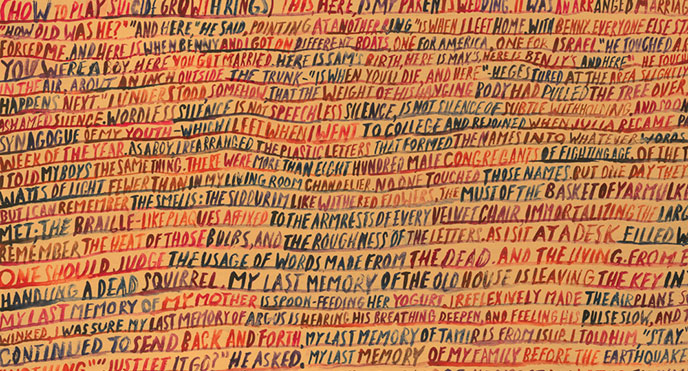 HOW TO PLAY SUICIDE GROWTH RINGS THIS HERE, IS MY PARENTS WEDDING. IT WAS AN ARRANGED MARRIAG
"HOW OLD WAS HE?" "AND HERE," HE SAID, POINTING AT ANOTHER RING "IS WHEN I LEFT HOME. WITH BENNY. EVERYONE ELSE ST
FORCED ME. AND HERE IS WHEN BENNY AND I GOT ON DIFFERENT BOATS, ONE FOR AMERICA, ONE FOR ISRAEL." HE TOUCHED A R
YOU WERE A BOY. HERE YOU GOT MARRIED. HERE IS SAM'S BIRTH, HERE IS MAX'S. HERE IS BENJY'S. AND HERE" HE TOUCH
IN THE AIR, ABOUT AN INCH OUTSIDE THE TRUNK-"IS WHEN YOU'LL DIE, AND HERE"-HE GESTURED AT THE AREA SLIGHTLY
HAPPENS NEXT." I UNDERSTOOD, SOMEHOW, THAT THE WEIGHT OF HIS HANGING BODY HAD PULLED THE TREE OVER
ASHAMED SILENCE. WORDLESS SILENCE IS NOT SPEECHLESS SILENCE, IS NOT SILENCE OF SUBTLE WITHHOLDING. AND
SYNAGOGUE OF MY YOUTH-WHICH I LEFT WHEN I WENT TO COLLEGE AND REJOINED WHEN JULIA BECAME P
WEEK OF THE YEAR. AS A BOY, I REARRANGED THE PLASTIC LETTERS THAT FORMED THE NAMES INTO WHATEVER WORDS
I TOLD MY BOYS THE SAME THING. THERE WERE MORE THAN EIGHT HUNDRED MALE CONGREGANTS OF FIGHTING AGE. OF THE T
WATTS OF LIGHT FEWER THAN IN MY LIVING ROOM CHANDELIER. NO ONE TOUCHED THOSE NAMES. BUT ONE DAY THE
BUT I CAN REMEMBER THE SMELLS: THE SIDDURIM LIKE WITHERED FLOWERS, THE MUST OF THE BASKET OF YARMULKE
MET; THE BRAILLE-LIKE PLAQUES AFFIXED TO THE ARMRESTS OF EVERY VELVET CHAIR, IMMORTALIZING THE LARG
REMEMBER THE HEAT OF THOSE BULBS, AND THE ROUGHNESS OF THE LETTERS. AS I SIT AT A DESK FILLED W
ONE SHOULD JUDGE THE USAGE OF WORDS MADE FROM THE DEAD. AND THE LIVING. FROM E
HANDLING A DEAD SQUIRREL. MY LAST MEMORY OF THE OLD HOUSE IS LEAVING THE KEY IN
MY LAST MEMORY OF MY MOTHER IS SPOON-FEEDING HER YOGURT. I REFLEXIVELY MADE THE AIRPLANE S
WINKED, I WAS SURE. MY LAST MEMORY OF ARGUS IS HEARING HIS BREATHING DEEPEN, AND FEELING HIS PULSE SLOW, AND T
CONTINUED TO SEND BACK AND FORTH, MY LAST MEMORY OF TAMIR IS FROM ISLIP. I TOLD HIM, "STAY"
NOTHING" "JUST LET IT GO?" HE ASKED. MY LAST MEMORY OF MY FAMILY BEFORE THE EARTHQUAKE